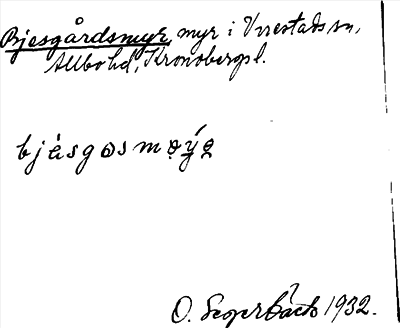 Bjesgårdsmyr, myr i Virestads sn,
Allbo hd, Kronobergs l.
bjèsgɷsmøýø
O. Segerbäck 1932.